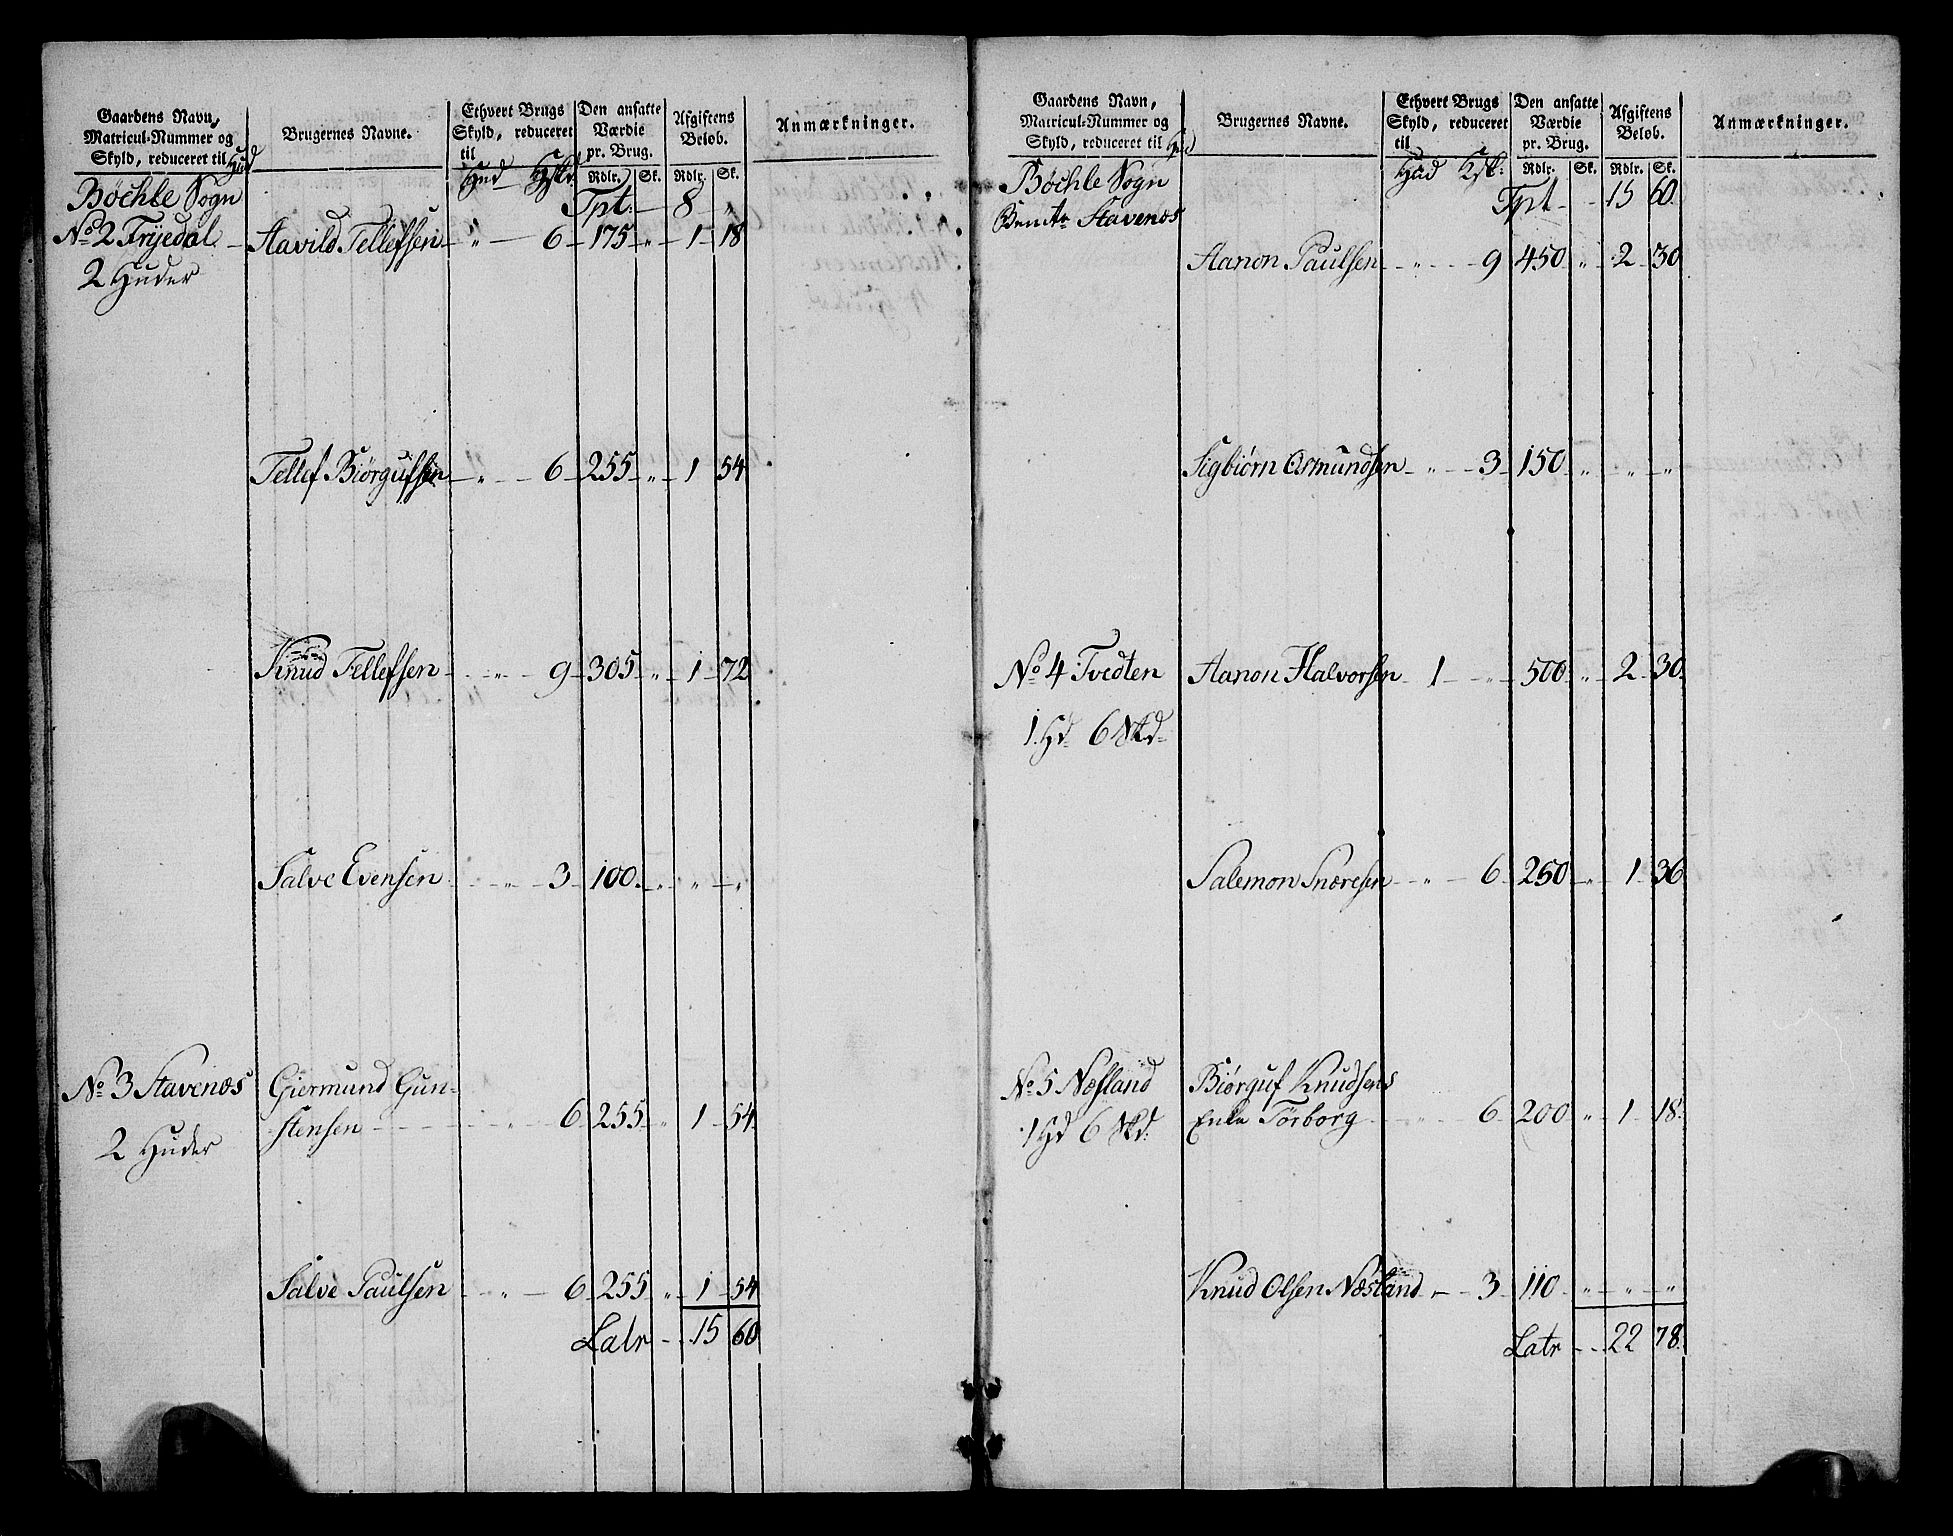 Gaardens Navn, Matricul-Nummer og Skyld, reduceret til Hud | Brugernes Navne. | Ethvert Brugs Skyld, reduceret til Hud | Den ansatte Værdie pr. Brug. Rdlr. Sk. | Afgiftens Beløb. Rdlr. Sk. | Anmærkninger.
Bøchle Sogn
Tpt: — 8 „
No 2 Trÿedal — Aavild Tellefsen — „ — 6 — 175 „ 1 — 18
2 Huder
Tellef Biørgufsen — „ — 6 — 255 — „ — 1 54
Knud Tellefsen — „ — 9 — 305 „ 1 — 72
Salve Evensen — „ — 3 — 100 — „ „ — „
No 3 Stavenæs Giermund Gun-
stensen — „ 6 — 255 „ 1 — 54
2 Huder
Salve Paulsen — „ — 6 — 255 „ 1 — 54
Latr — 15 60
Gaardens Navn, Matricul-Nummer og Skyld, reduceret til Hud | Brugernes Navne. | Ethvert Brugs Skyld, reduceret til Hud | Den ansatte Værdie pr. Brug. Rdlr. Sk. | Afgiftens Beløb. Rdlr. Sk. | Anmærkninger.
Bøchle Sogn
Tpt — 15 60
Stavenæs
Aanon Paulsen — „ — 9 450 „ 2 — 30
Sigbiørn Osmundsen — „ — 3 — 150 „ „ — „
No 4 Tvedten Aanon Halvorsen — 1 — „ — 500 „ 2 — 30
1 Hd 6 Skd
Salemon Snøresen — „ — 6 — 250 — „ 1 — 36
No 5 Næsland Biørguf Knudsens
1 Hd 6 Skd: Enke Torborg — „ — 6 — 200 „ 1 — 18
Knud Olsen Næsland „ — 3 — 110 „ „ „
Latr — 22 78